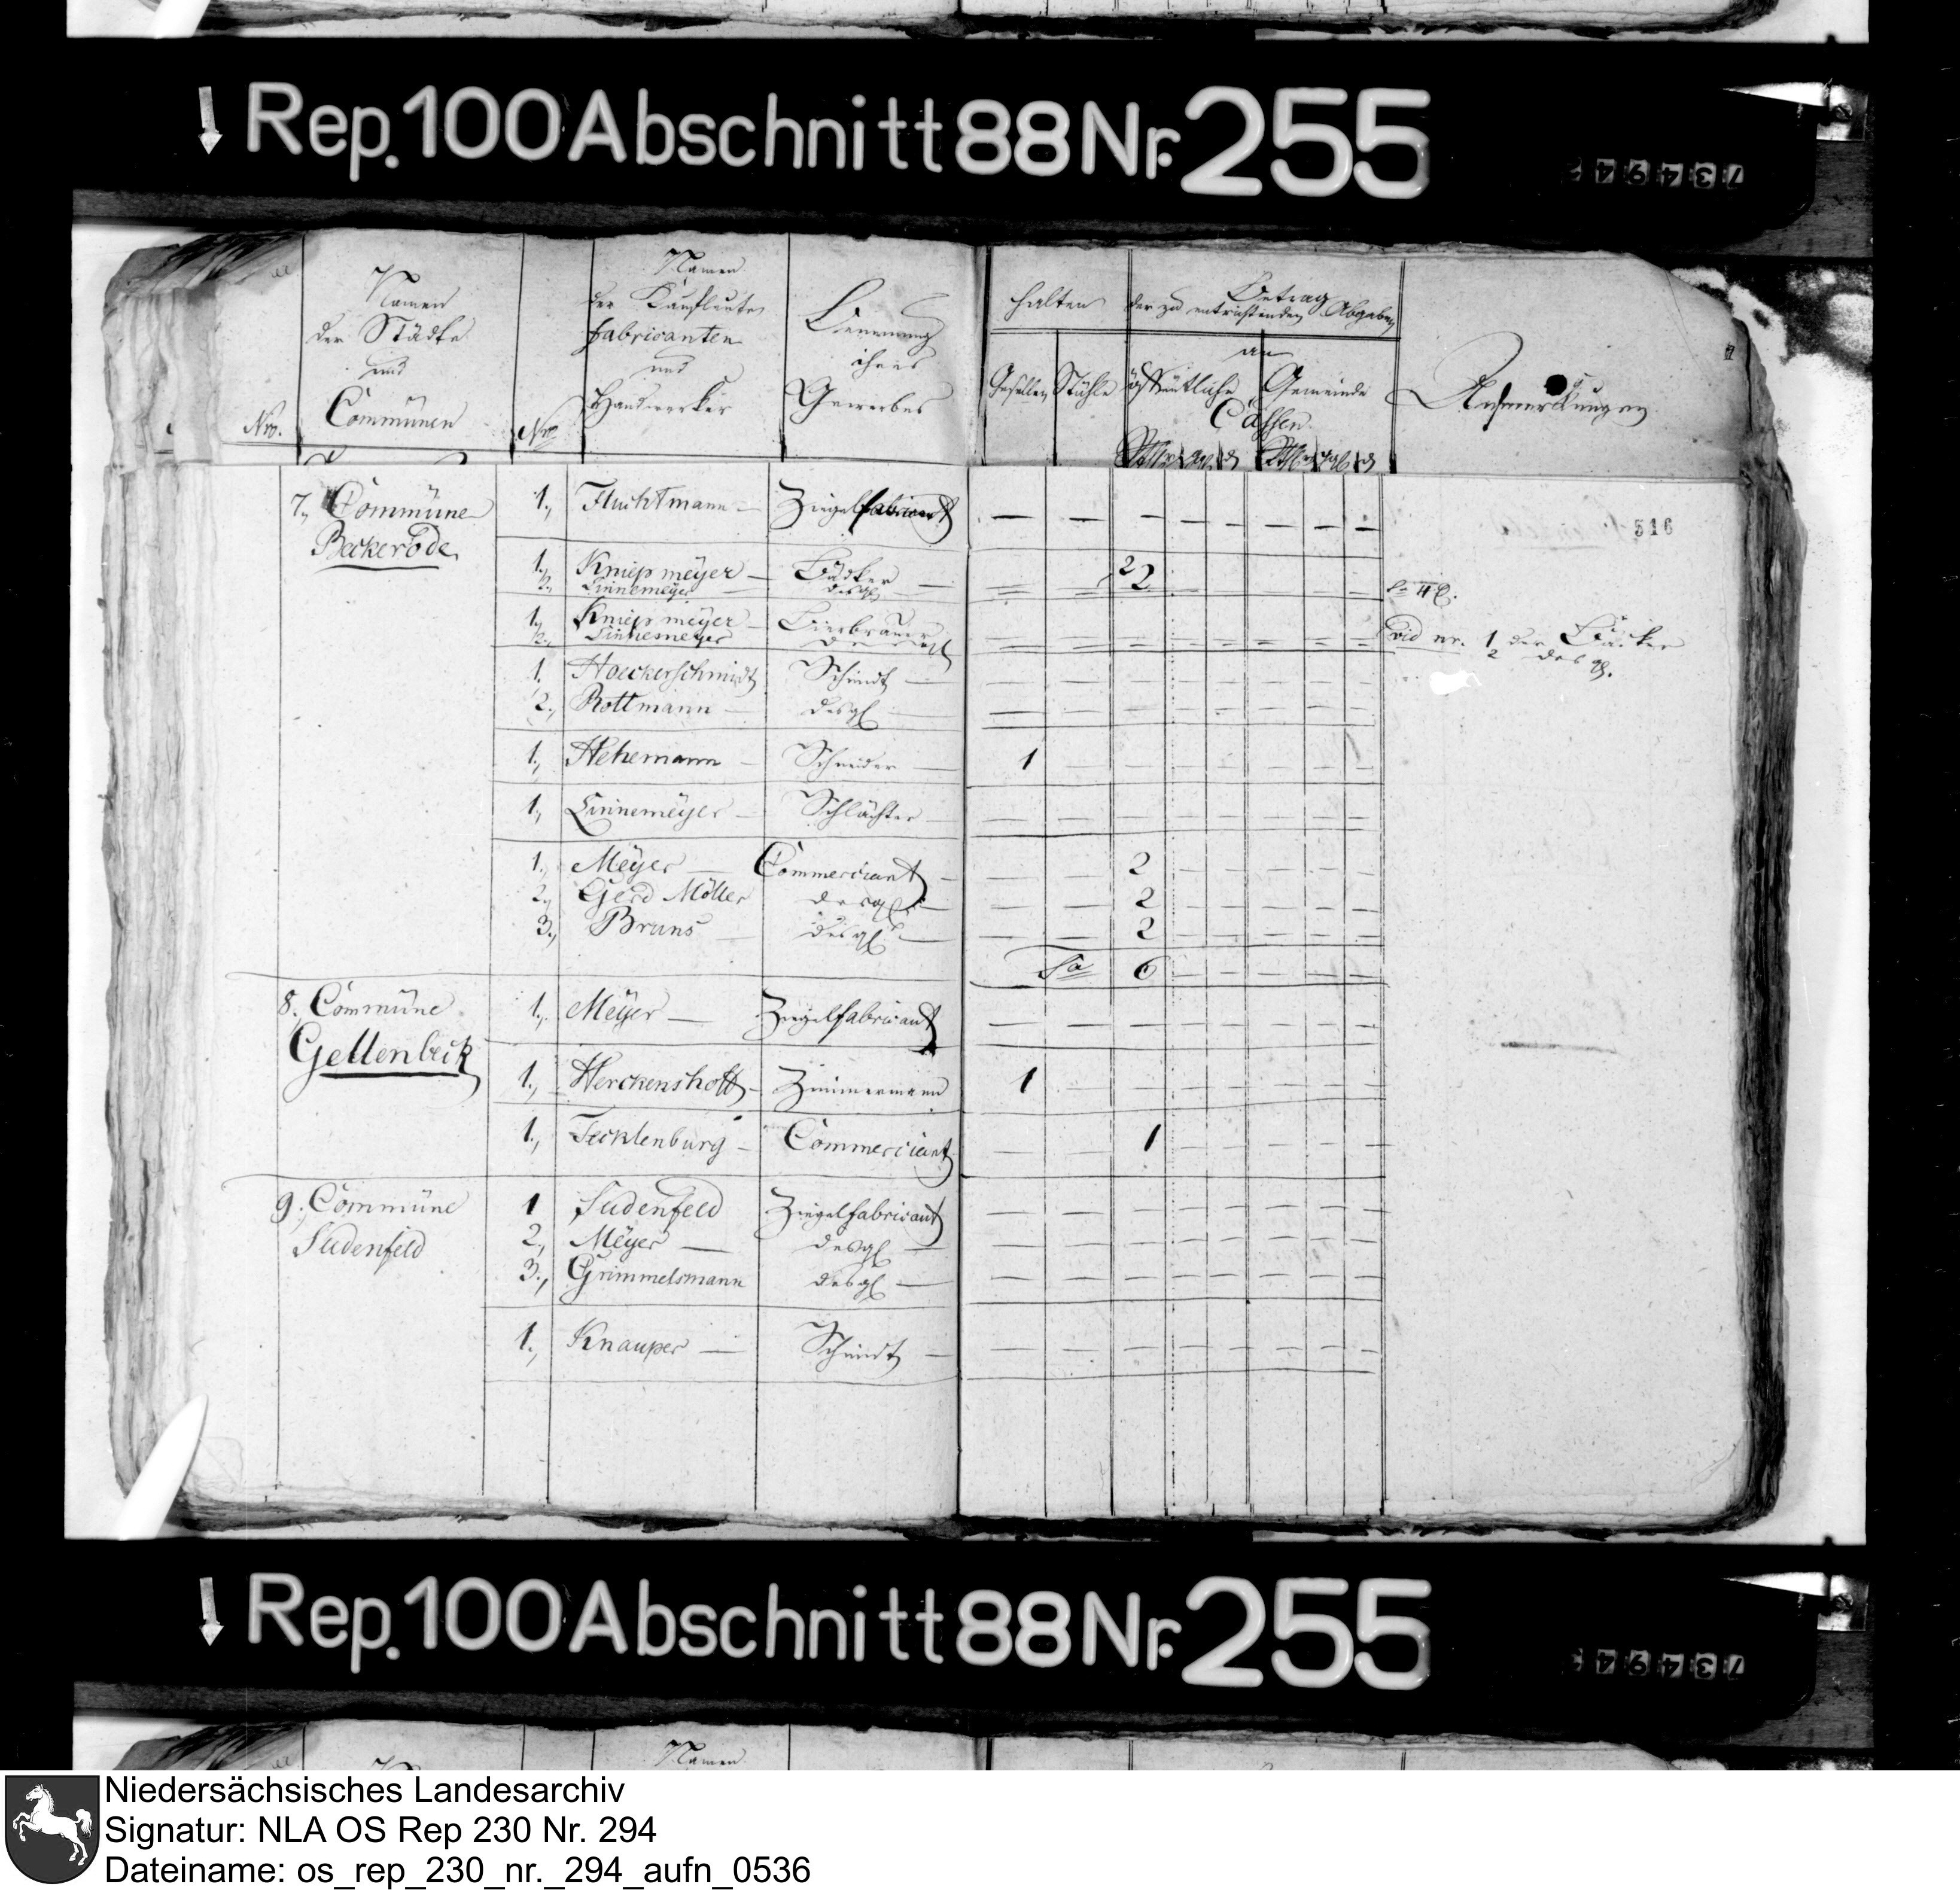 Rep. 100 Abschnitt 88 Nr. 255
734943
Nro.
Namen
der Städte
und
Communen
Nro
Namen
der Kaufleute
fabricanten
und
Handwerker
Benennung
ihres
Gewerbes
halten
Gesellen Stühle
Betrag
der zu entrichtenden Abgaben
an
öffentliche Gemeinde
Cassen
Anmerkungen
516
7., Commüne
Beckerode
1., Fluchtmann — Ziegelfabricant — — — — — — — —
1., Kniepmeyer — Bäcker — 2
2., Linnemeyer desgl — 2
1., Kniepmeyer — Bierbrauer
2., Linnemeyer
vid nr. 1 der Bäcker
2 desgl.
1. Hoeckerschmidt Schmidt —
2., Rottmann — desgl —
1., Hehemann — Schneider — 1
1., Linnemeyer — Schlächter —
1., Meyer — Commerciant — 2
2., Gerd Möller desgl — 2
3., Bruns — desgl — 2
Sa 6
8., Commüne
Gellenbeck
1., Meyer — Ziegelfabricant
1., Herckenshoff — Zimmermann 1
1., Tecklenburg — Commerciant 1
9., Commüne
Sudenfeld
1 Sudenfeld Ziegelfabricant
2., Meyer — desgl —
3., Grimmelsmann desgl —
1., Knauper — Schmidt —
Rep. 100 Abschnitt 88 Nr. 255
734943
Namen
Niedersächsisches Landesarchiv
Signatur: NLA OS Rep 230 Nr. 294
Dateiname: os_rep_230_nr._294_aufn_0536